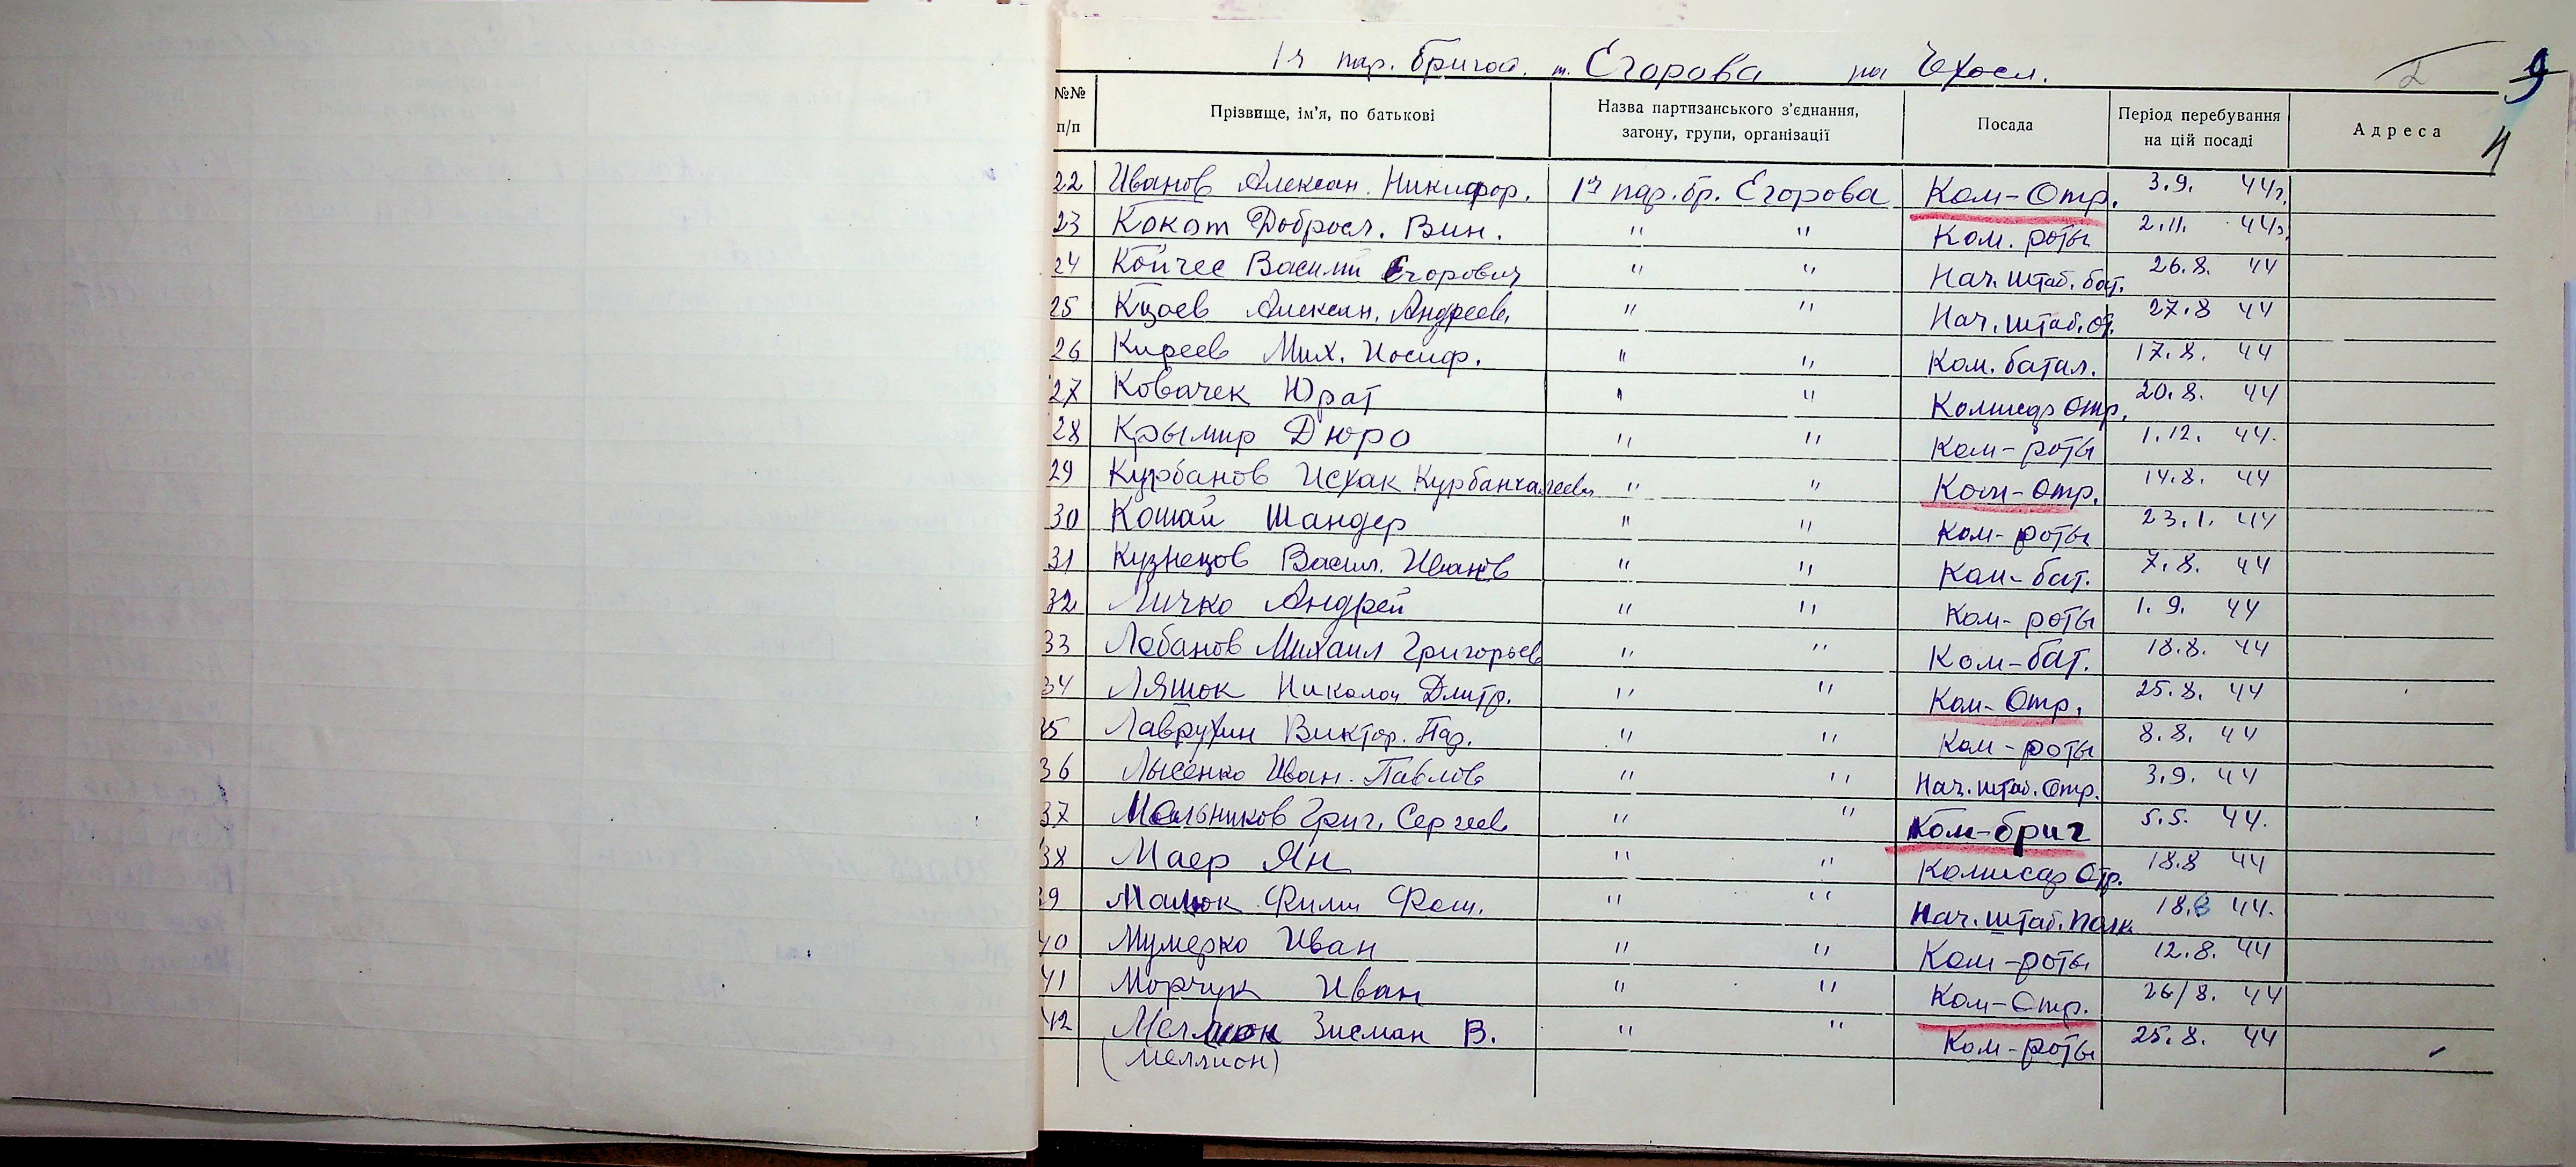 1я пар. бригад. т. Егорова на Чехосл.
2 9
№№ п/п Прізвище, ім'я, по батькові Назва партизанського з'єднання, загону, групи, організації Посада Період перебування на цій посаді Адреса
22 Иванов Алексан. Никифор. 1я пар. бр. Егорова Ком-Отр. 3.9. 44г.
23 Кокот Добросл. Вин. " " Ком. роты 2.11. 44г.
24 Койчес Василий Егорович " " Нач. штаб. бат. 26.8. 44
25 Кцоев Алексан. Андреев. " " Нач. штаб. от. 27.8 44
26 Киреев Мих. Иосиф. " " Ком. батал. 17.8. 44
27 Ковачек Юрат " " Комисар Отр. 20.8. 44
28 Крымир Дюро " " Ком-роты 1.12. 44.
29 Курбанов Исхак Курбанхалеевич " " Ком-Отр. 14.8. 44
30 Кошай Шандер " " Ком-роты 23.1. 44
31 Кузнецов Васил. Иванов " " Ком-бат. 7.8. 44
32 Личко Андрей " " Ком-роты 1.9. 44
33 Лобанов Михаил Григорьев " " Ком-бат. 18.8. 44
34 Ляшок Николай Дмитр. " " Ком-Отр. 25.8. 44
35 Лаврухин Виктор. " " Ком-роты 8.8. 44
36 Лысенко Иван. Павлов " " Нач. штаб. Отр. 3.9. 44
37 Мельников Григ. Сергеев " " Ком-бриг 5.5. 44.
38 Маер Ян " " Комисар Отр. 18.8 44
39 Малюк Фили Фом. " " Нач. штаб. Полк 18.8 44.
40 Мумерко Иван " " Ком-роты 12.8. 44
41 Морчук Иван " " Ком-Отр. 26/8. 44
42 Зисман В. " " Ком-роты 25.8. 44
(Меллион)